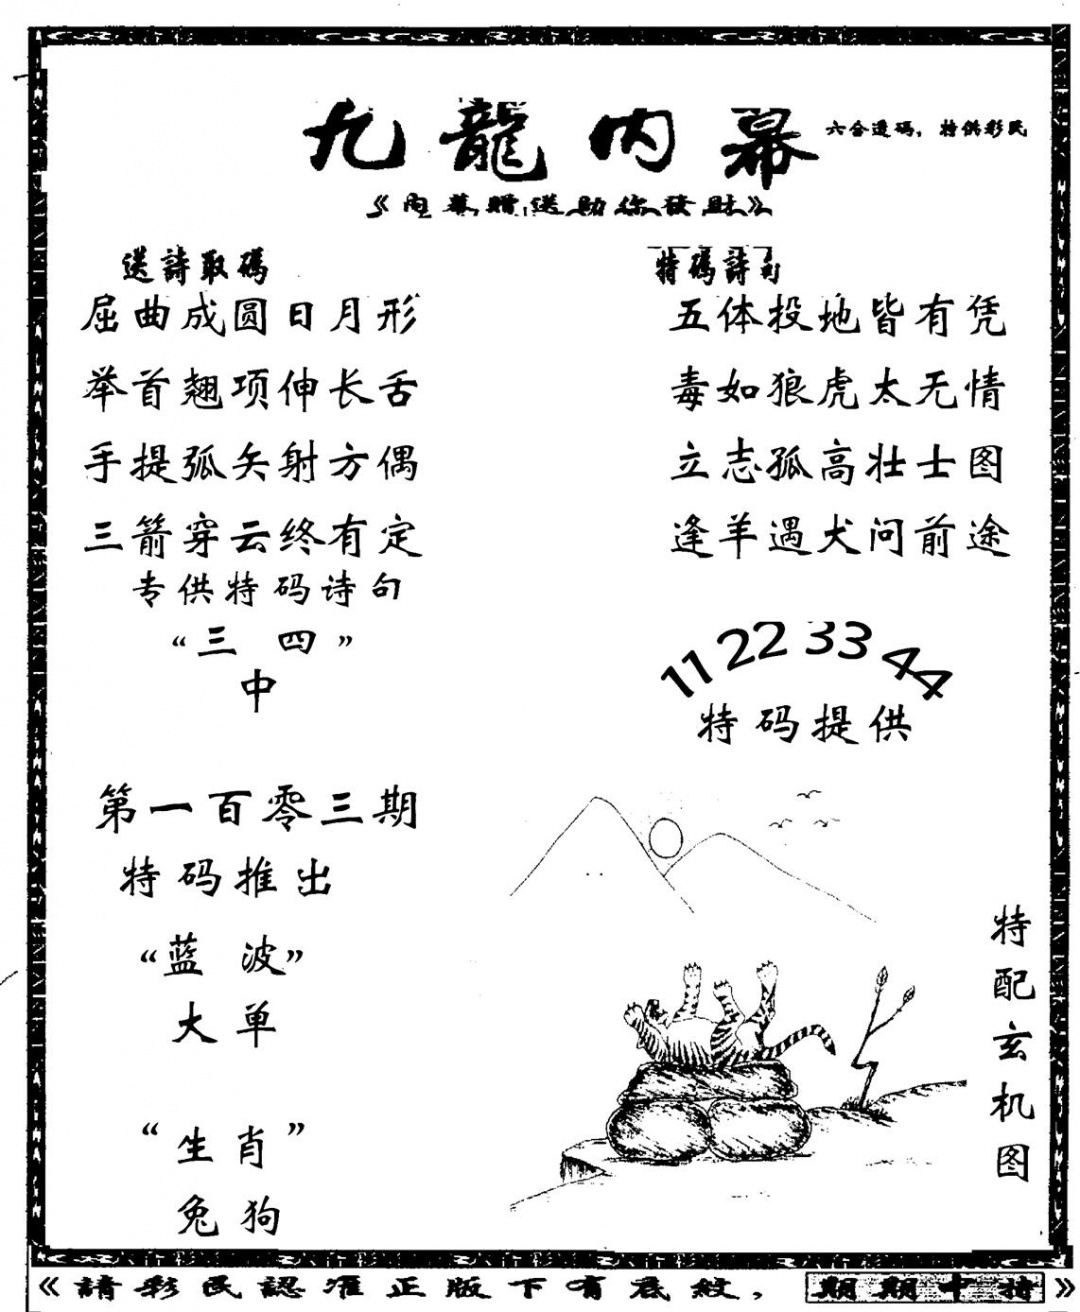 九龍内幕
六合透码，特供彩民
《内幕赠送助你發財》
送詩取碼
屈曲成圆日月形
举首翘项伸长舌
手提弧矢射方偶
三箭穿云终有定
专供特码诗句
“三 四”
中
特碼詩句
五体投地皆有凭
毒如狼虎太无情
立志孤高壮士图
逢羊遇犬问前途
11 22 33 44
特码提供
第一百零三期
特码推出
“蓝 波”
大单
“生肖”
兔狗
特配玄机图
《請彩民認准正版下有底紋，期期中特》